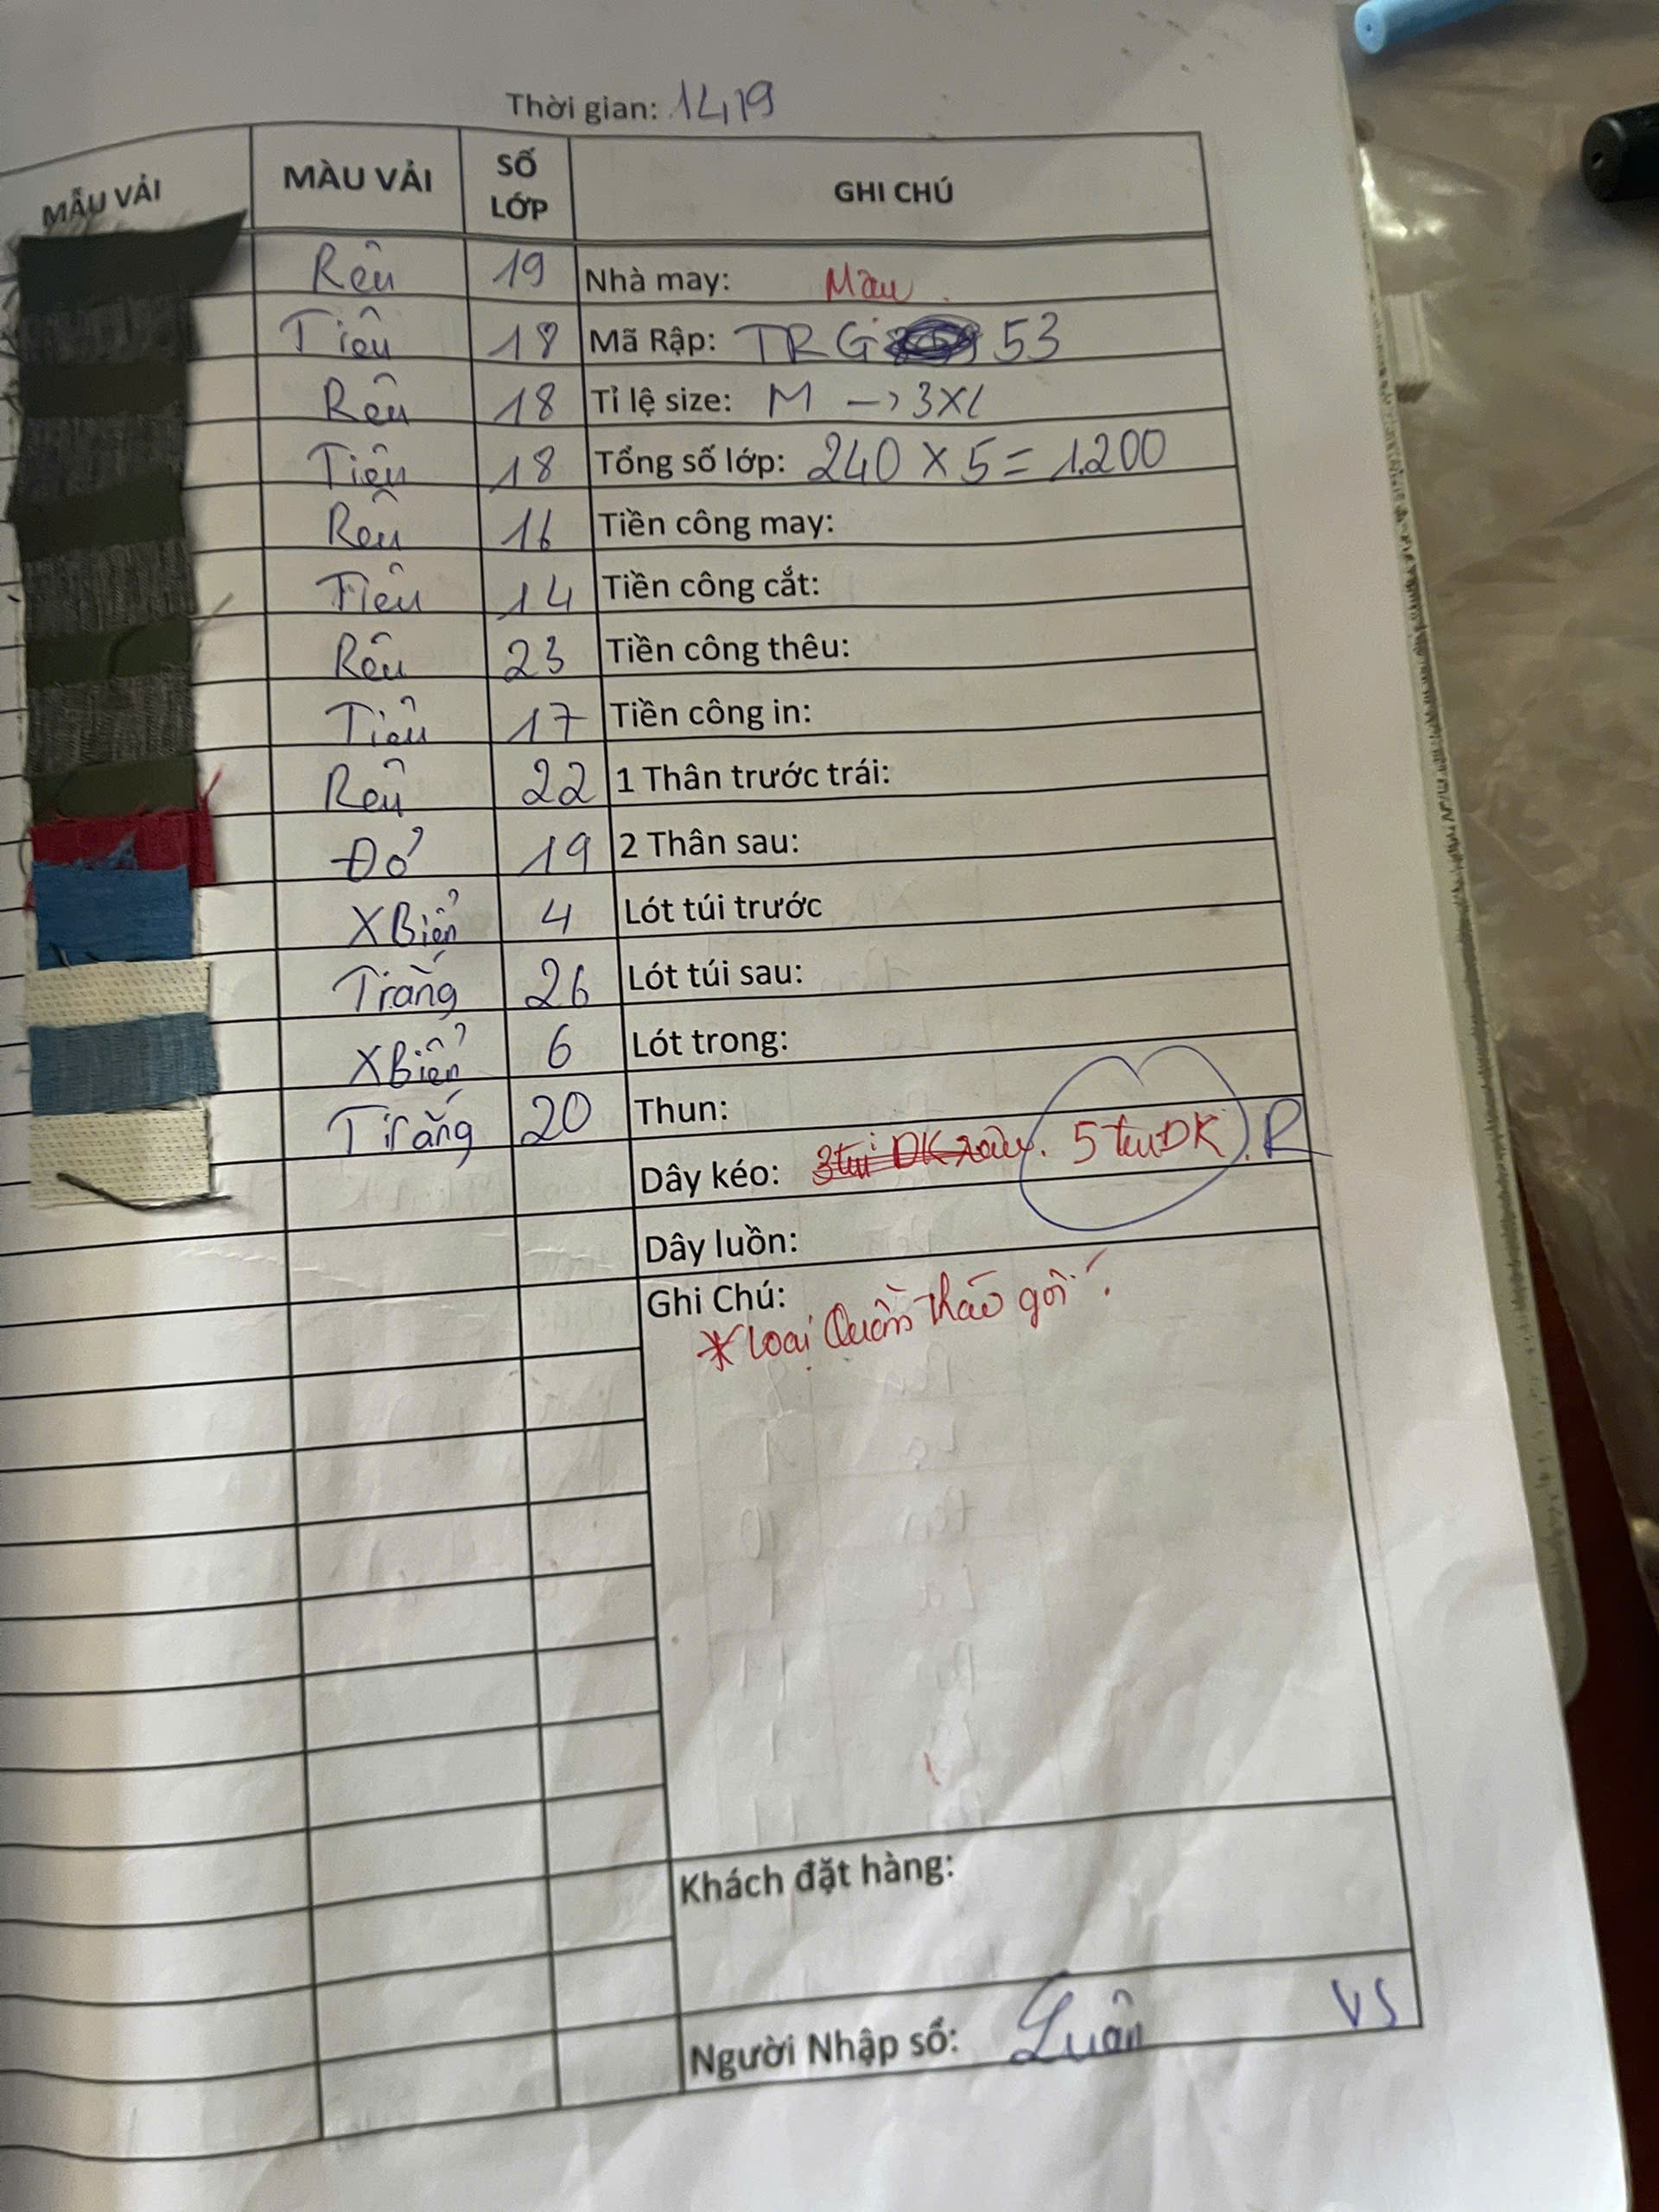 Thời gian: 14/9
MẪU VẢI MÀU VẢI SỐ LỚP GHI CHÚ
Rêu 19 Nhà may: Màu
Tiêu 18 Mã Rập: TRG 53
Rêu 18 Tỉ lệ size: M -> 3XL
Tiêu 18 Tổng số lớp: 240 x 5 = 1.200
Rêu 16 Tiền công may:
Tiêu 14 Tiền công cắt:
Rêu 23 Tiền công thêu:
Tiêu 17 Tiền công in:
Rêu 22 1 Thân trước trái:
Đỏ 19 2 Thân sau:
XBiển 4 Lót túi trước
Trắng 26 Lót túi sau:
XBiển 6 Lót trong:
Trắng 20 Thun:
Dây kéo: 5 túi DK. R
Dây luồn:
Ghi Chú:
* Loại Quần tháo gối.
Khách đặt hàng:
Người Nhập sổ: Luân VS